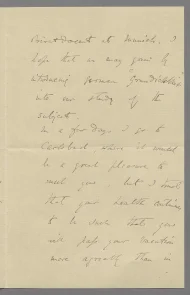 appointment at Munich. I
hope that we may gain by
introducing German "Gründlichkeit"
into our study of the
subject.
In a few days I go to
Carlsbad where it would
be a great pleasure to
meet you, but I trust
that your health continues
to be such that you
will pass your vacation
more agreeably than in